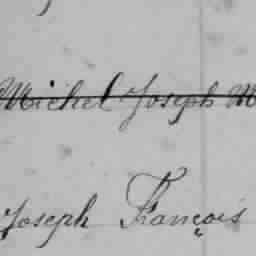 Michel Joseph M
Joseph François